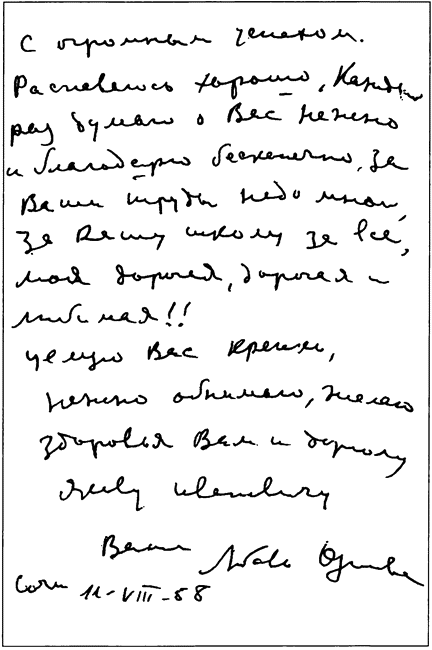 с огромным успехом.
Распевалось хорошо, Каждый
раз думаю о Вас нежно
и благодарно бесконечно, за
Ваши труды надо мной,
за Вашу школу за всё,
моя дорогая, дорогая и
любимая!!
целую Вас крепко,
нежно обнимаю, желаю
здоровья Вам и дорогому
Якову Ивановичу
Ваша
Сочи 11-VIII-58